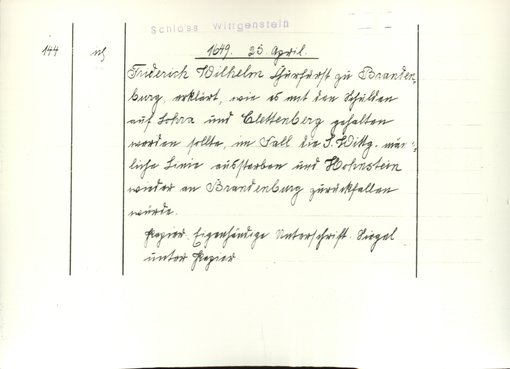 Schloss Wittgenstein
144
1649. 25. April.
Friderich Wilhelm Churfürst zu Branden-
burg, erklärt, wie es mit den Schulden
auf Lohra und Clettenberg gehalten
werden sollte, im Fall die S. Wittg. män-
liche Linie aussterben und Hohnstein
wieder an Brandenburg zurückfallen
würde.
Papier. Eigenhändige Unterschrift. Siegel
unter Papier